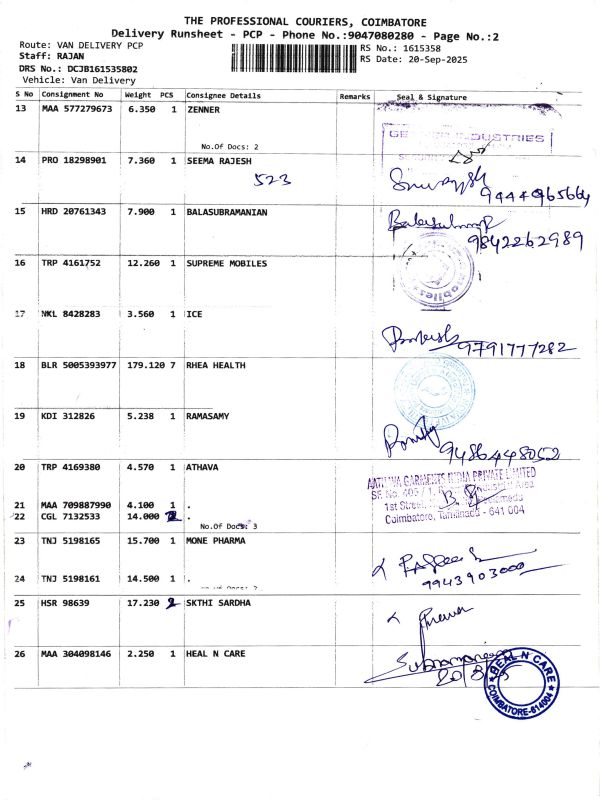 THE PROFESSIONAL COURIERS, COIMBATORE
Delivery Runsheet - PCP - Phone No.:9047080280 - Page No.:2
Route: VAN DELIVERY PCP RS No.: 1615358
Staff: RAJAN RS Date: 20-Sep-2025
DRS No.: DCJB161535802
Vehicle: Van Delivery
S No Consignment No Weight PCS Consignee Details Remarks Seal & Signature
13 MAA 577279673 6.350 1 ZENNER
INDUSTRIES
No.Of Docs: 2
14 PRO 18298901 7.360 1 SEEMA RAJESH
523
9444965664
15 HRD 20761343 7.900 1 BALASUBRAMANIAN
9842262989
16 TRP 4161752 12.260 1 SUPREME MOBILES
17 NKL 8428283 3.560 1 ICE
9791777282
18 BLR 5005393977 179.120 7 RHEA HEALTH
19 KDI 312826 5.238 1 RAMASAMY
9486448052
20 TRP 4169380 4.570 1 ATHAVA
GARMENTS INDIA PRIVATE LIMITED
SF. No. 405 / 1, Industrial Area
21 MAA 709887990 4.100 1 . 1st Street,
22 CGL 7132533 14.000 2 . Coimbatore, Tamilnadu - 641 004
No.Of Docs: 3
23 TNJ 5198165 15.700 1 MONE PHARMA
24 TNJ 5198161 14.500 1 . 9943903000
25 HSR 98639 17.230 2 SKTHI SARDHA
26 MAA 304098146 2.250 1 HEAL N CARE
HEAL N CARE
COIMBATORE-614004